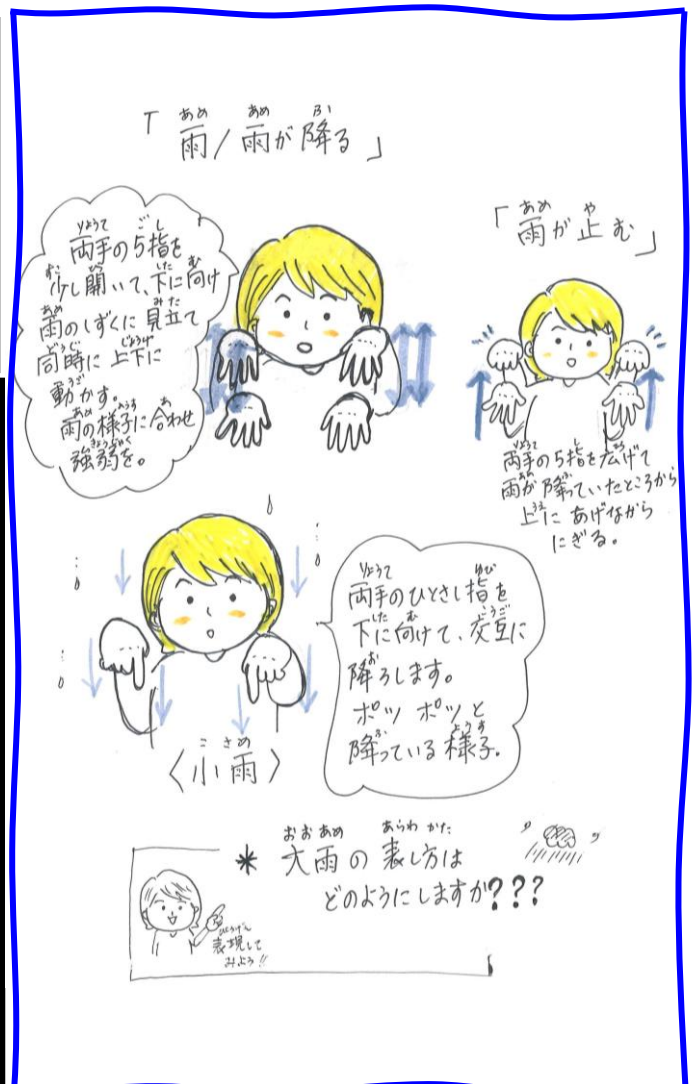 「雨/雨が降る」
両手の5指を
少し開いて、下に向け
雨のしずくに見立て
同時に上下に
動かす。
雨の様子に合わせ
強弱を。
「雨が止む」
両手の5指を広げて
雨が降っていたところから
上にあげながら
にぎる。
両手のひとさし指を
下に向けて、交互に
降ろします。
ポツポツと
降っている様子。
〈小雨〉
*大雨の表し方は
どのようにしますか???
表現して
みよう!!